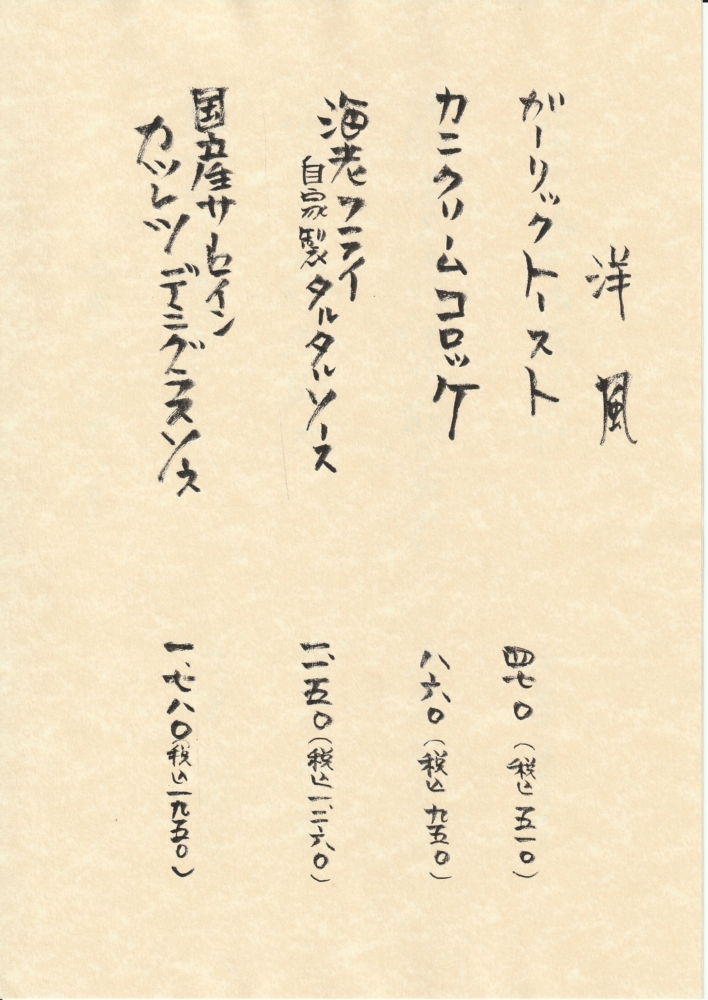 洋風
ガーリックトースト
四七〇(税込五一〇)
カニクリームコロッケ
八六〇(税込九五〇)
海老フライ
自家製タルタルソース
一、一五〇(税込一、二六〇)
国産サーロイン
カツレツデミグラスソース
一、七八〇(税込一九五〇)